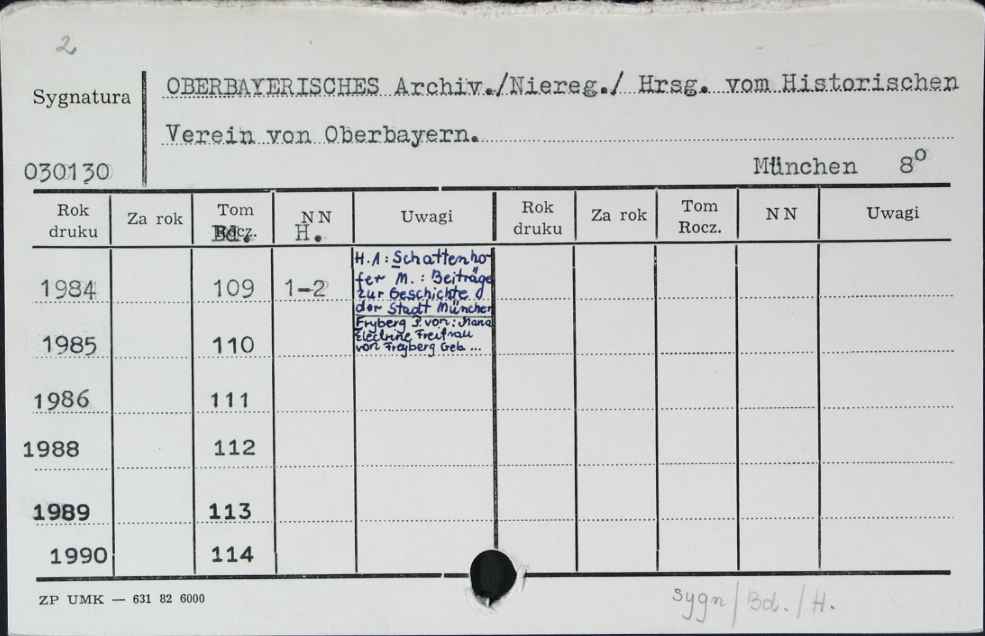 2
Sygnatura
OBERBAYERISCHES Archiv./Niereg./ Hrsg. vom Historischen
Verein von Oberbayern.
030130
München 8⁰
Rok druku Za rok Tom Rocz. NN Uwagi Rok druku Za rok Tom Rocz. NN Uwagi
Bd. H.
1984 109 1-2
H.1: Schattenho
fer M.: Beiträge
zur Geschichte
der Stadt München
Fryberg P. von: Maria
Electrine Freifrau
von Freyberg Geb ...
1985 110
1986 111
1988 112
1989 113
1990 114
ZP UMK — 631 82 6000
Sygn/Bd./H.